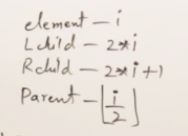 element - i
Lchild - 2*i
Rchild - 2*i+1
Parent - ⌊i/2⌋